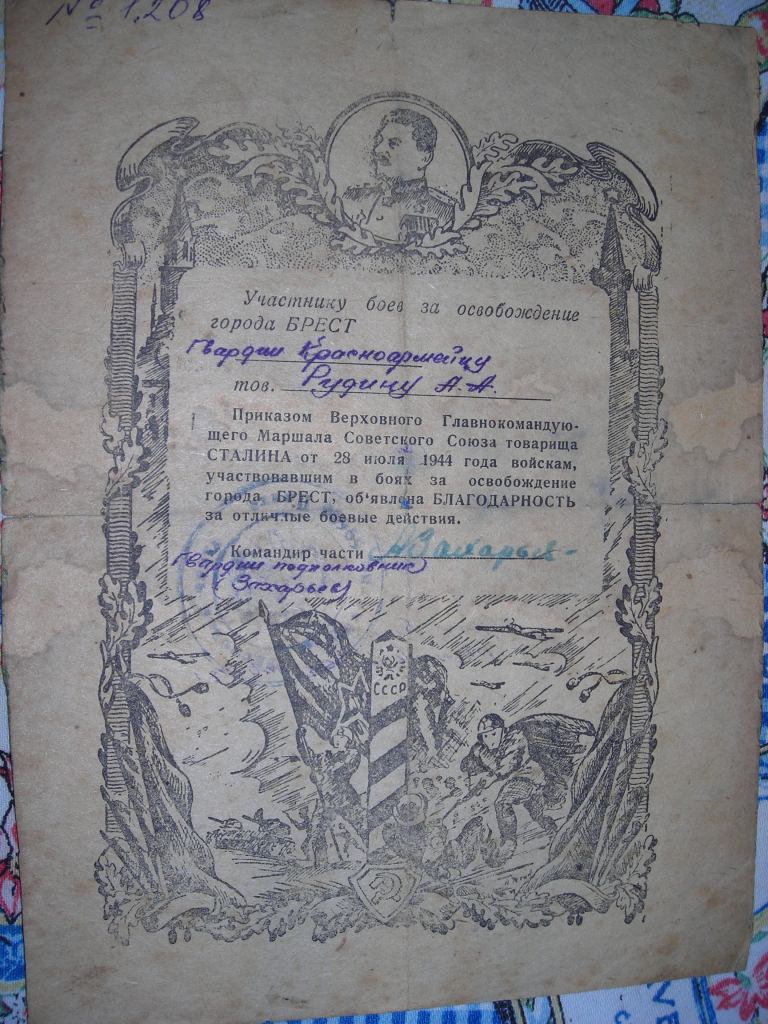 № 1.208
Участнику боев за освобождение
города БРЕСТ
Гвардии Красноармейцу
тов. Рудину А. А.
Приказом Верховного Главнокомандую-
щего Маршала Советского Союза товарища
СТАЛИНА от 28 июля 1944 года войскам,
участвовавшим в боях за освобождение
города БРЕСТ, об'явлена БЛАГОДАРНОСТЬ
за отличные боевые действия.
Командир части Захарьев
Гвардии подполковник
(Захарьев)
СССР